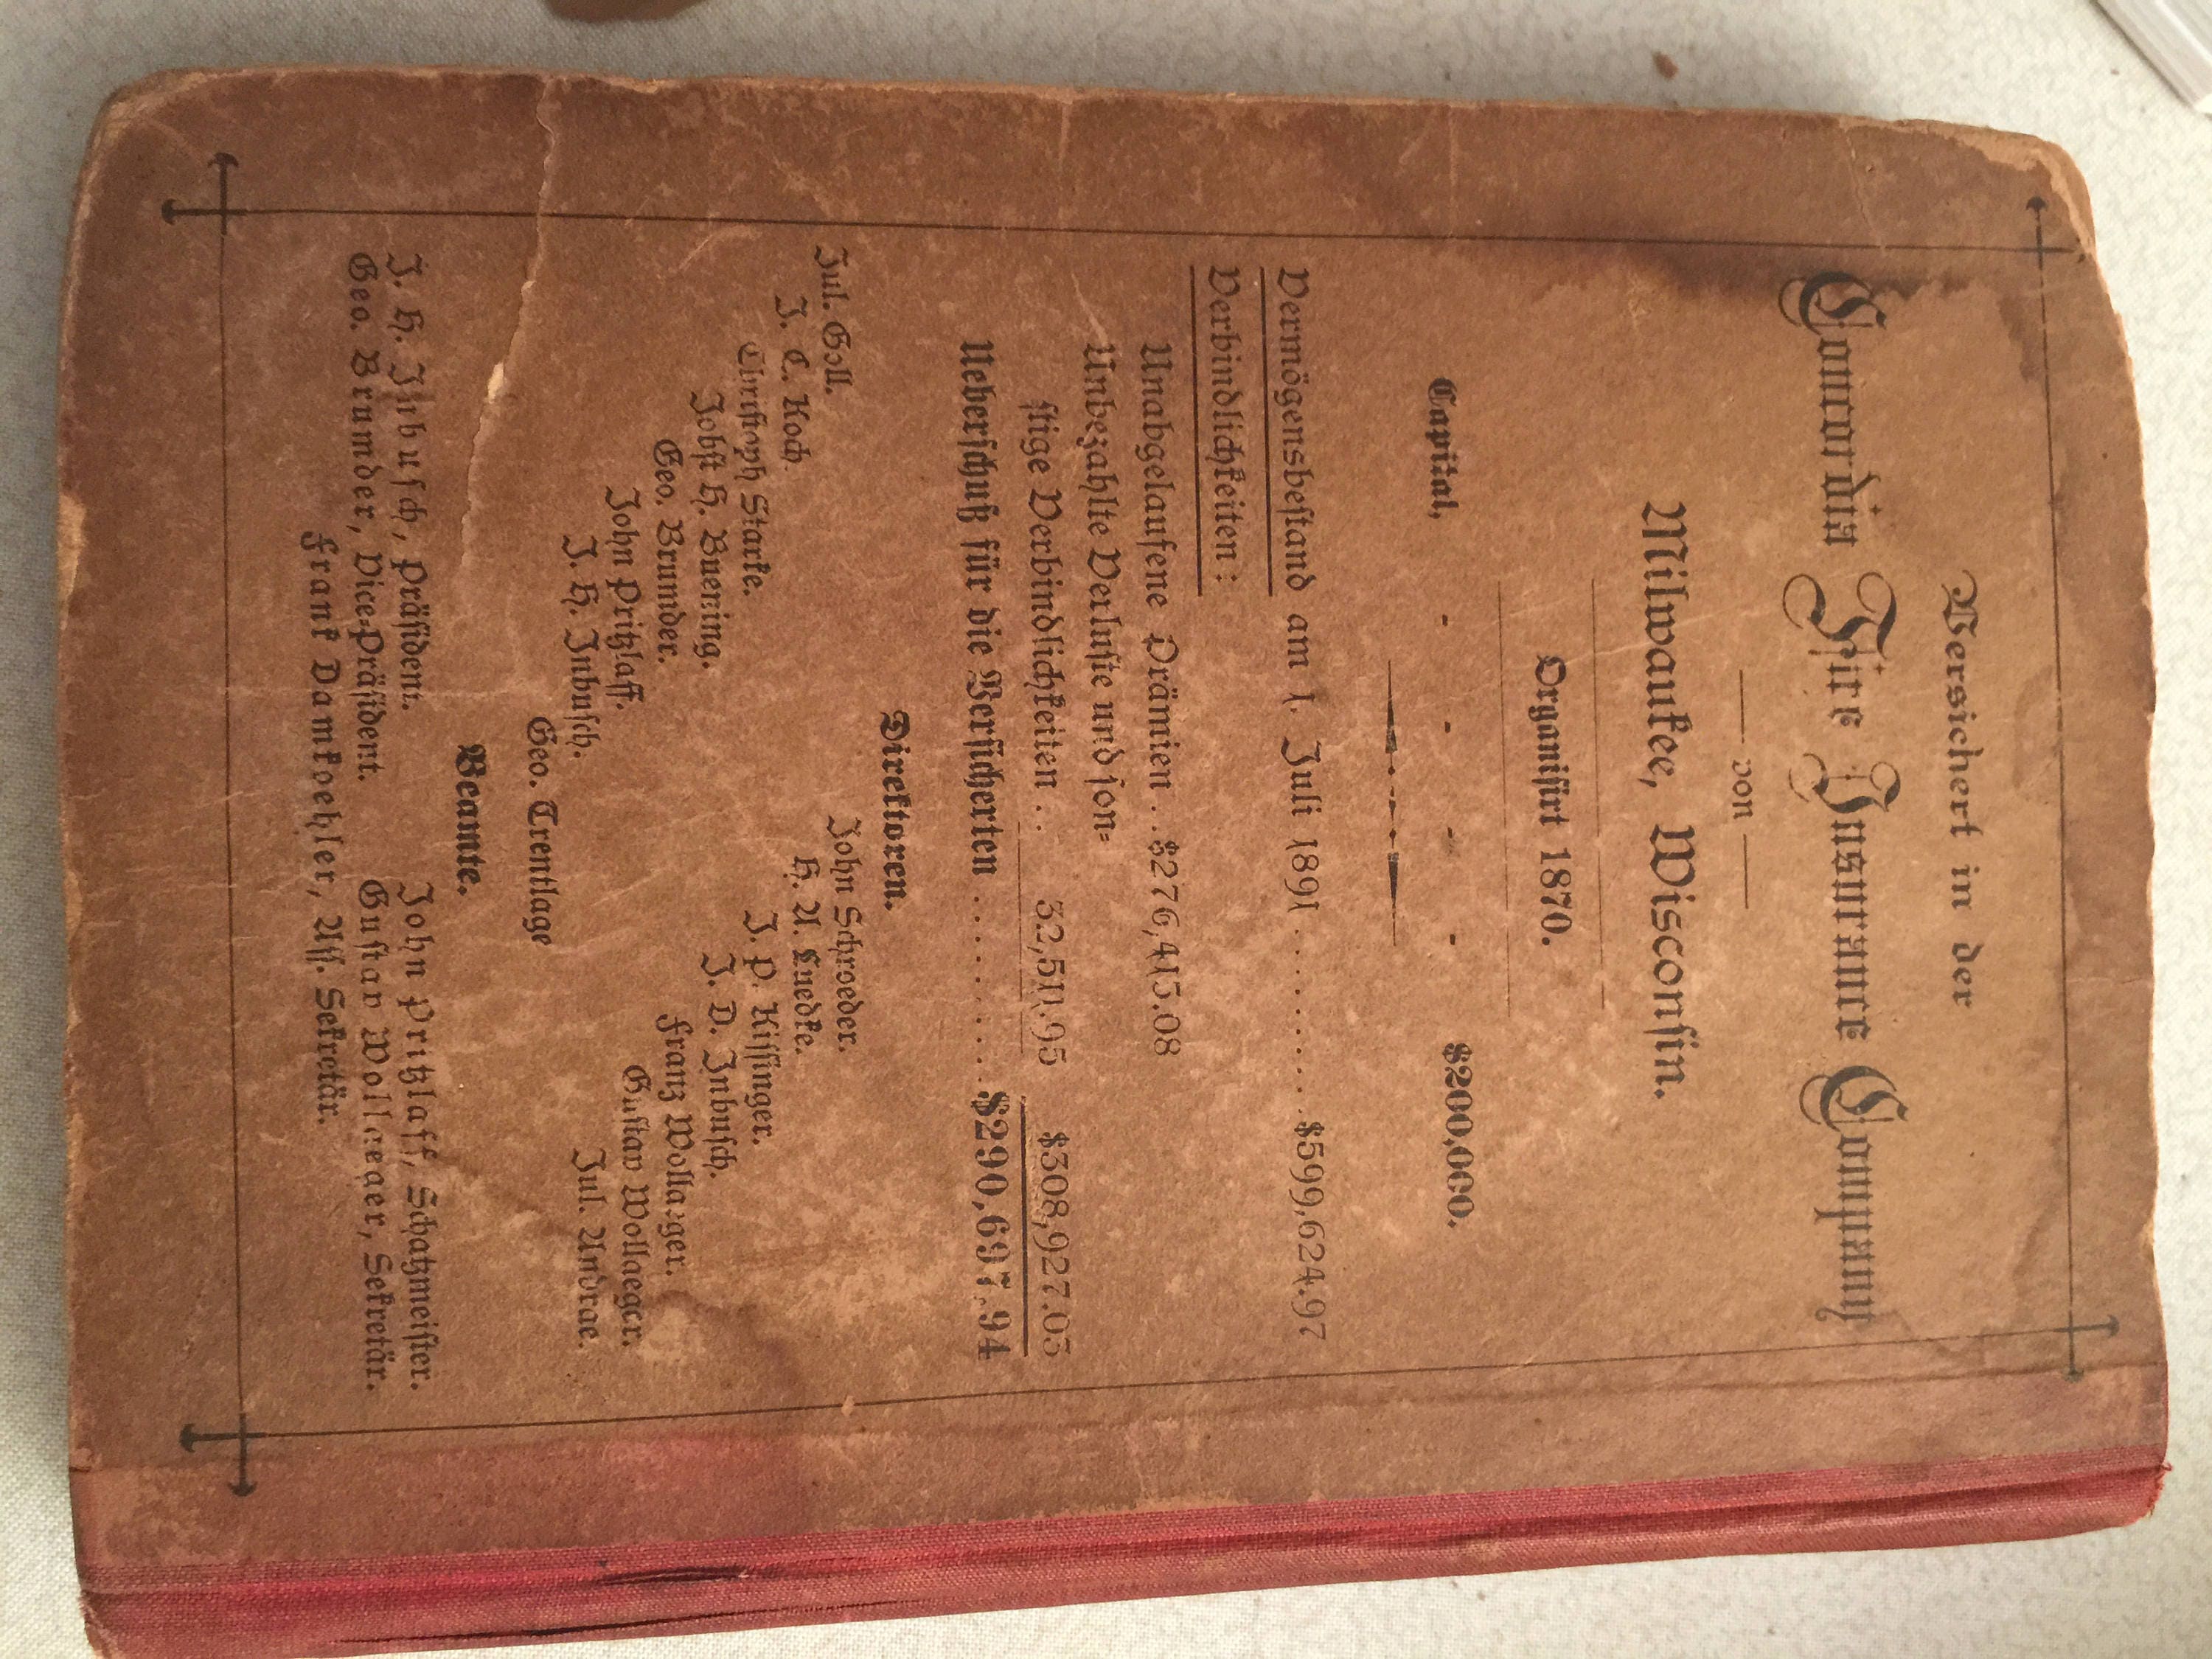 Versichert in der
Concordia Fire Insurance Company
— von —
Milwaukee, Wisconsin.
Organisirt 1870.
Capital, - - - - $200,000.
Vermögensbestand am 1. Juli 1891 . . . . . . . . . . $599,624.97
Verbindlichkeiten:
Unabgelaufene Prämien . . $276,415.08
Unbezahlte Verluste und son-
stige Verbindlichkeiten . . 32,511.95 $308,927.03
Ueberschuß für die Versicherten . . . . . . . . . . $290,697.94
Direktoren.
Jul. Goll. John Schroeder.
J. C. Koch. H. A. Luedke.
Christoph Starke. J. P. Kissinger.
Jobst H. Buening. J. D. Inbusch.
Geo. Brumder. Franz Wollaeger.
John Pritzlaff. Gustav Wollaeger.
J. H. Inbusch. Jul. Andrae.
Geo. Trentlage
Beamte.
J. H. Inbusch, Präsident. John Pritzlaff, Schatzmeister.
Geo. Brumder, Vice-Präsident. Gustav Wollaeger, Sekretär.
Frank Damkoehler, Ass. Sekretär.